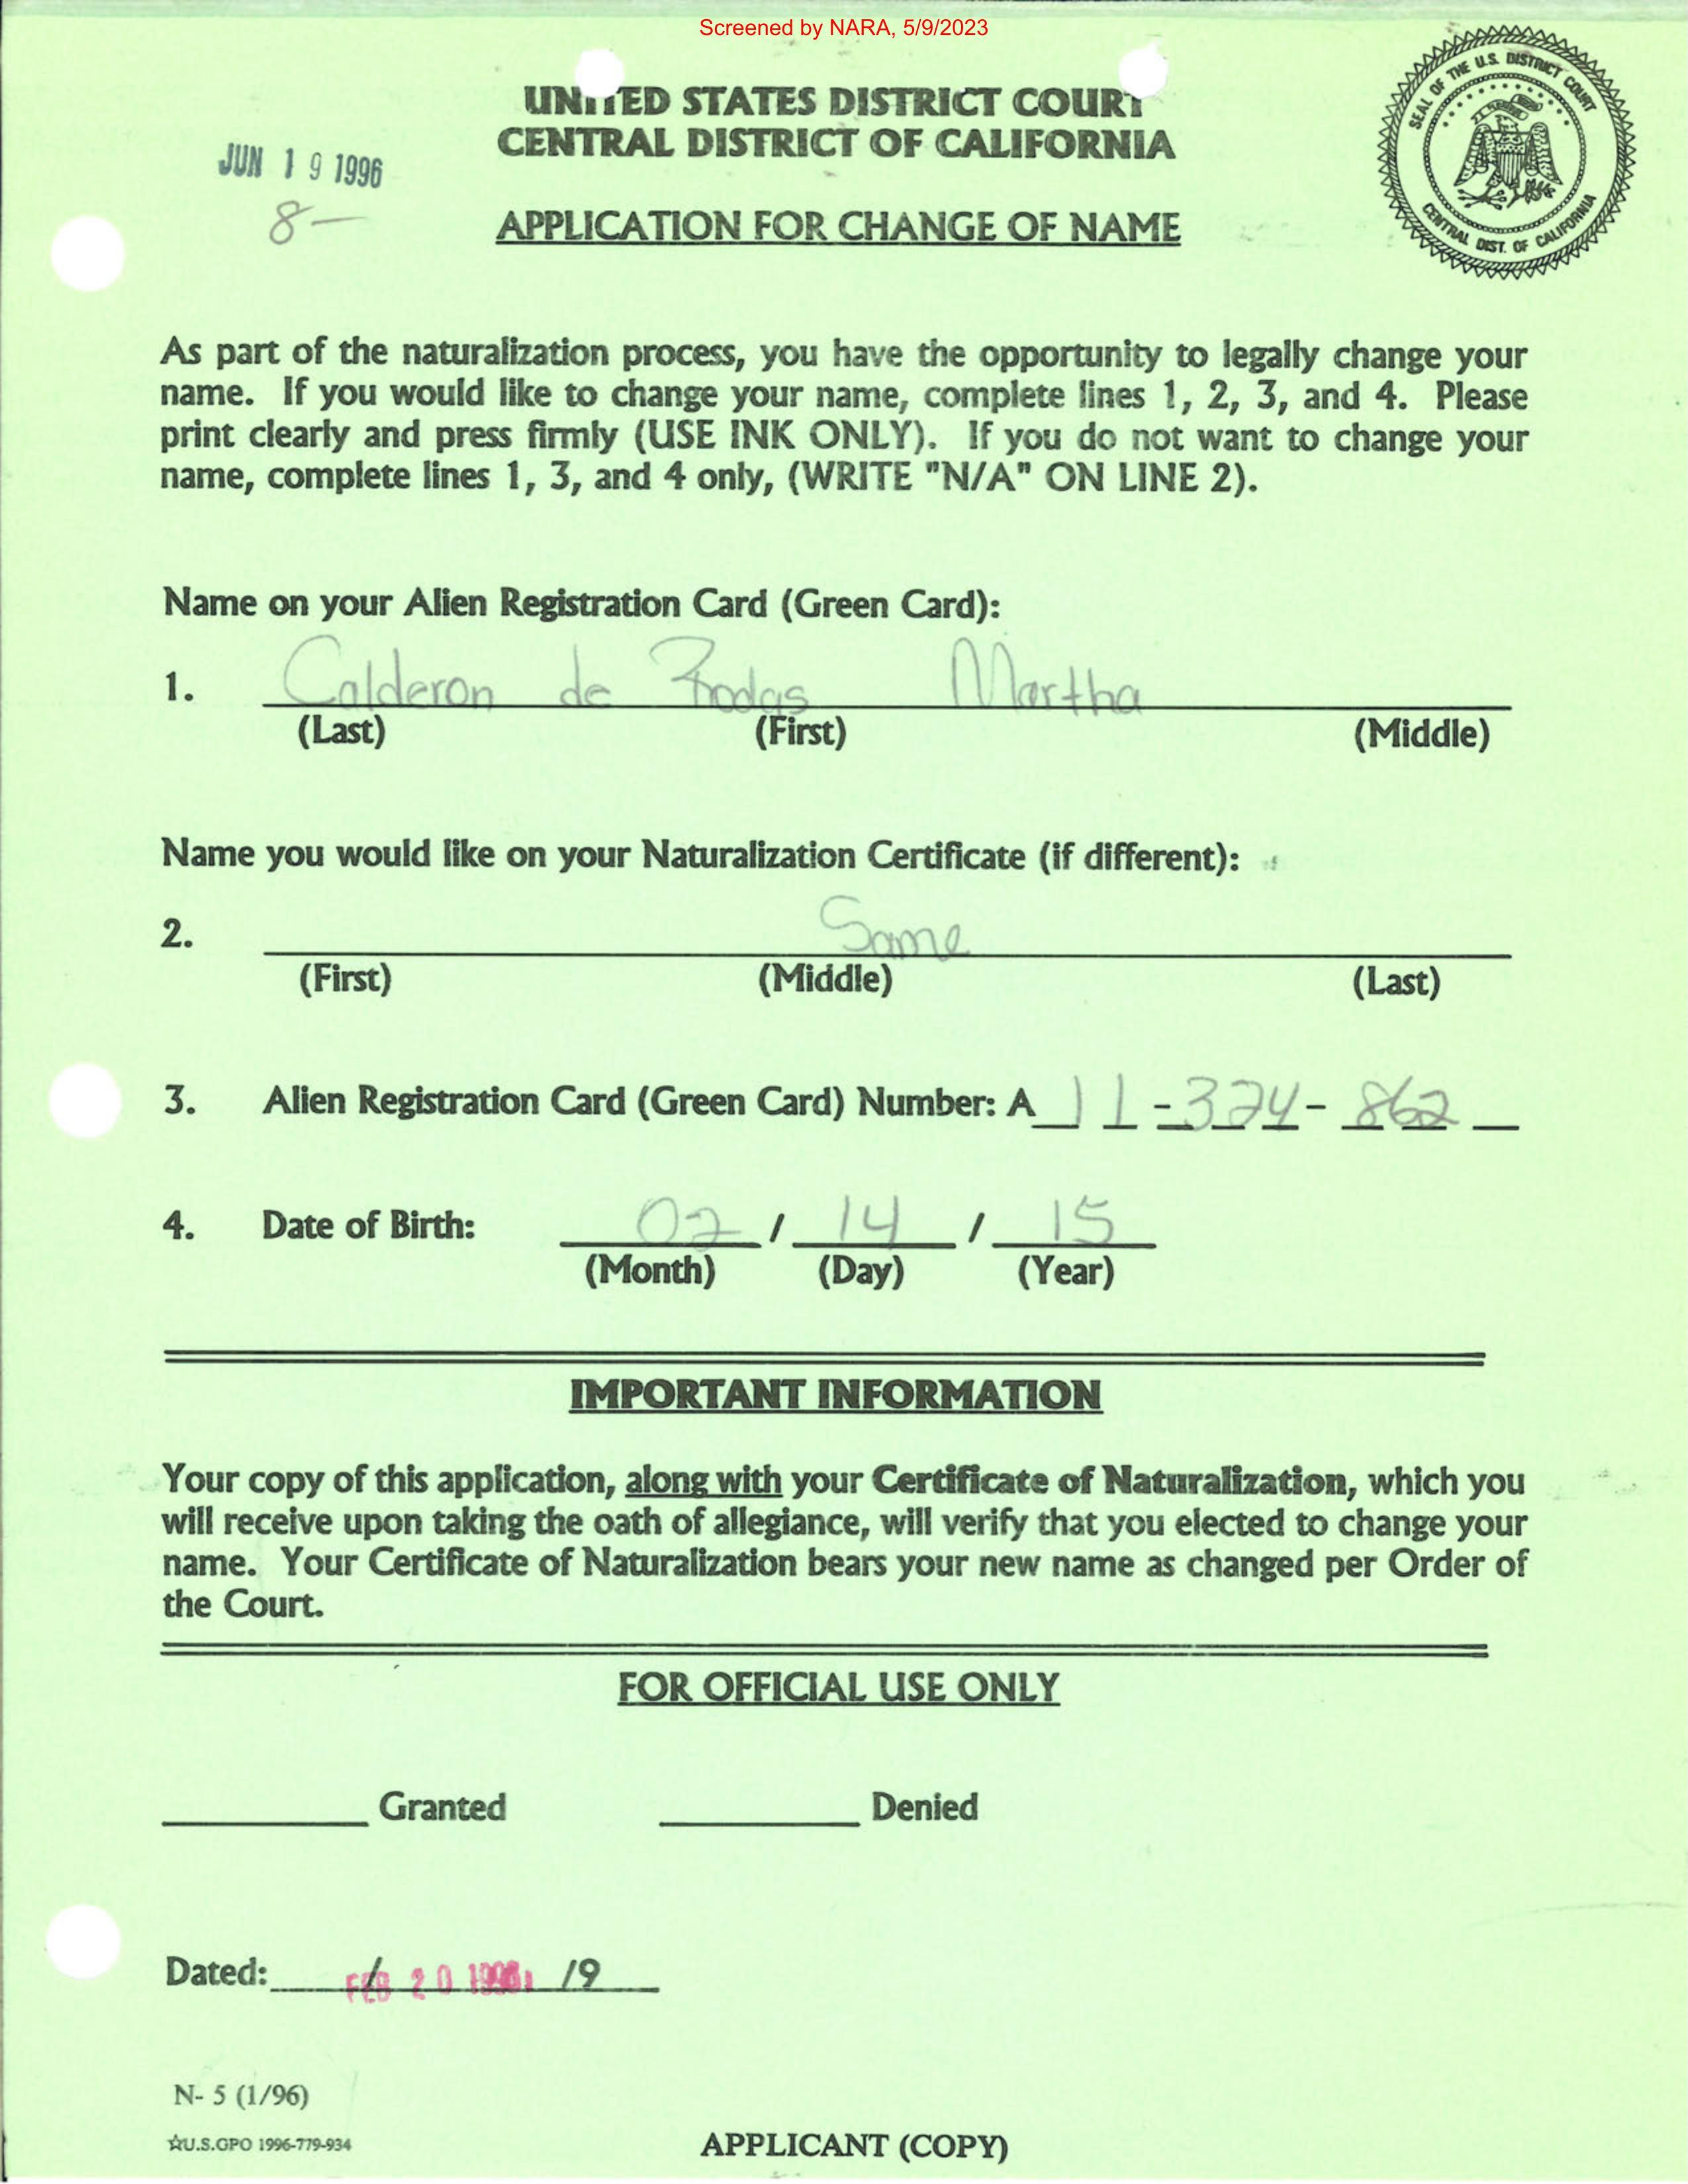 Screened by NARA, 5/9/2023
SEAL OF THE U.S. DISTRICT COURT
CENTRAL DIST. OF CALIFORNIA
UNITED STATES DISTRICT COURT
CENTRAL DISTRICT OF CALIFORNIA
JUN 19 1996
8-
APPLICATION FOR CHANGE OF NAME
As part of the naturalization process, you have the opportunity to legally change your
name. If you would like to change your name, complete lines 1, 2, 3, and 4. Please
print clearly and press firmly (USE INK ONLY). If you do not want to change your
name, complete lines 1, 3, and 4 only, (WRITE "N/A" ON LINE 2).
Name on your Alien Registration Card (Green Card):
1. Calderon de Rodas Martha
(Last) (First) (Middle)
Name you would like on your Naturalization Certificate (if different):
2. Same
(First) (Middle) (Last)
3. Alien Registration Card (Green Card) Number: A 11-324-862
4. Date of Birth: 02 / 14 / 15
(Month) (Day) (Year)
IMPORTANT INFORMATION
Your copy of this application, along with your Certificate of Naturalization, which you
will receive upon taking the oath of allegiance, will verify that you elected to change your
name. Your Certificate of Naturalization bears your new name as changed per Order of
the Court.
FOR OFFICIAL USE ONLY
Granted Denied
Dated: / FEB 20 /9
N- 5 (1/96)
☆U.S.GPO 1996-779-934
APPLICANT (COPY)